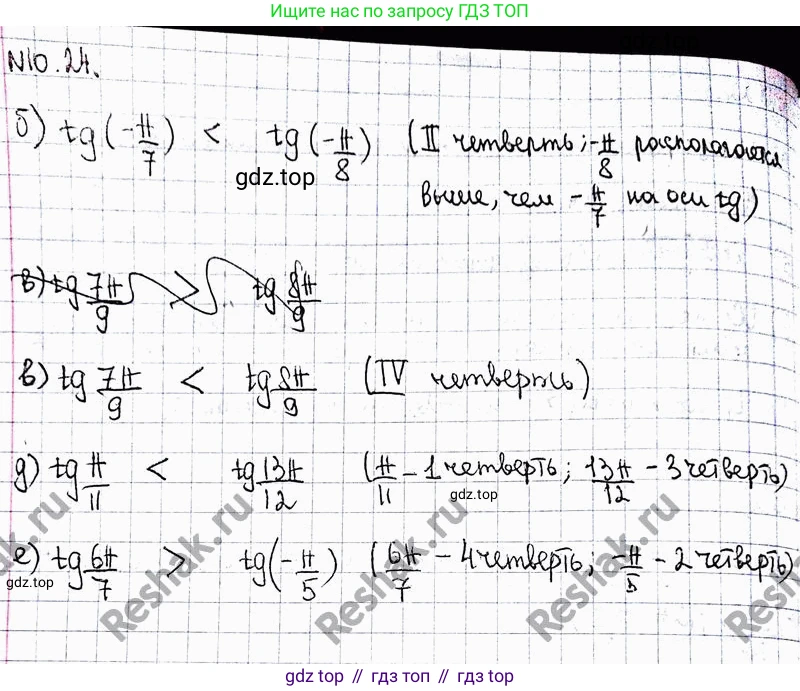 Ищите нас по запросу ГДЗ ТОП
N10.24.
б) tg(-π/7) < tg(-π/8) (II четверть; -π/8 располагается
gdz.top
выше, чем -π/7 на оси tg)
в) tg 7π/9 > tg 8π/9
в) tg 7π/9 < tg 8π/9 (IV четверть)
д) tg π/11 < tg 13π/12 (π/11 - 1 четверть; 13π/12 - 3 четверть)
gdz.top
е) tg 6π/7 > tg(-π/5) (6π/7 - 4 четверть; -π/5 - 2 четверть)
gdz.top
Reshak.ru
Reshak.ru
Reshak.ru
Reshak.ru
gdz top // гдз топ // гдз top